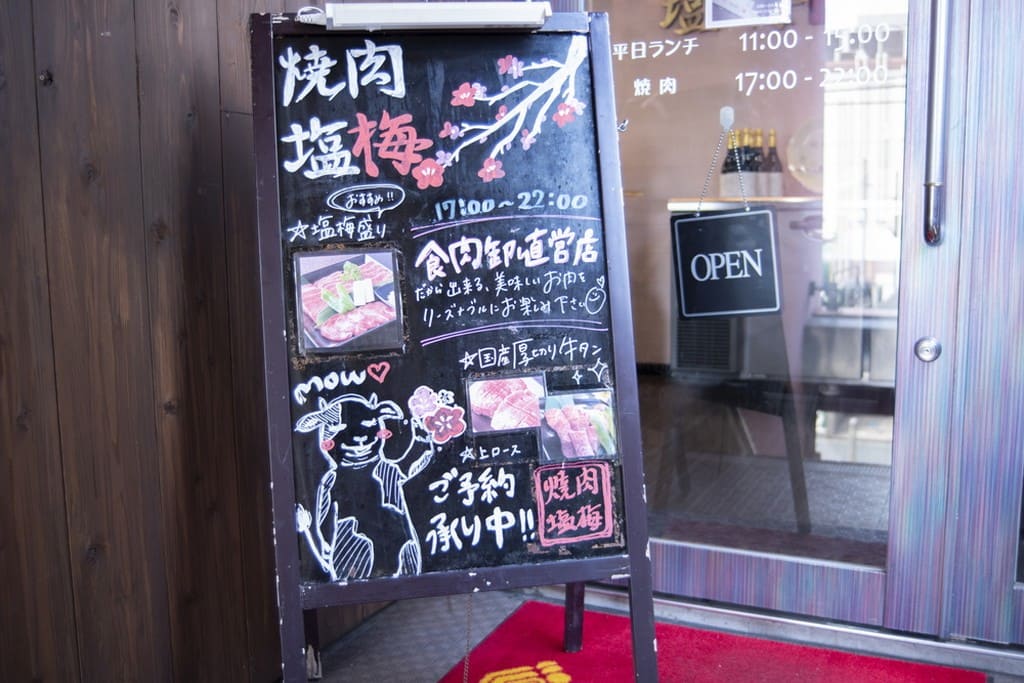 焼肉
塩梅
おすすめ!!
☆塩梅盛り
17:00～22:00
食肉卸直営店
だから出来る、美味しいお肉を
リーズナブルにお楽しみ下さい
☆国産厚切り牛タン
mow♡
☆上ロース
ご予約
承り中!!
焼肉
塩梅
塩
平日ランチ 11:00 - 15:00
焼肉 17:00 - 22:00
OPEN